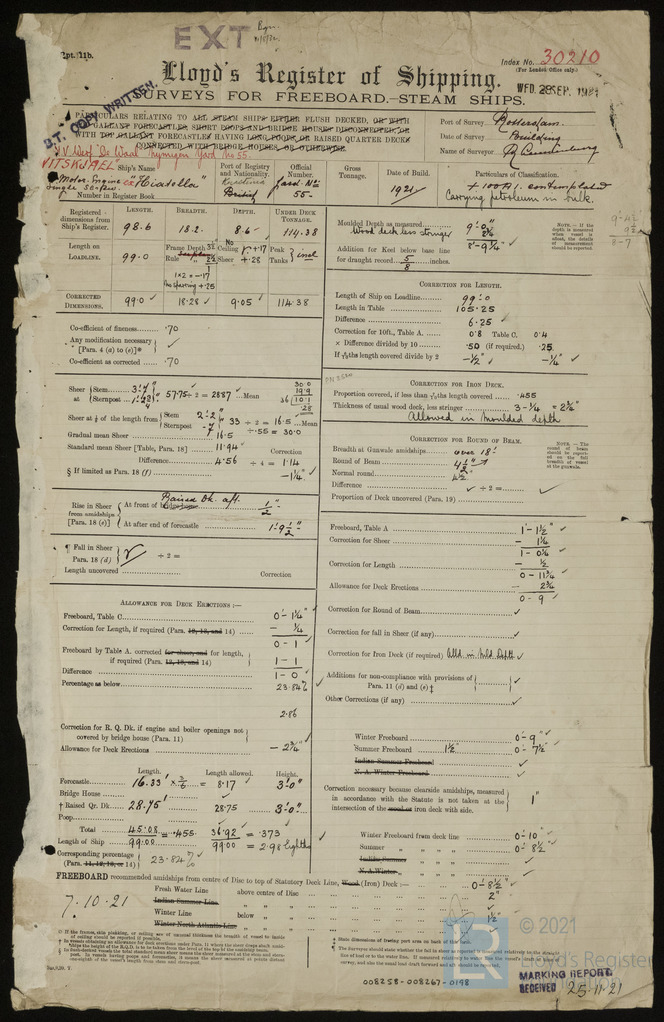 EXT
Rpt. 11b.
Index No. 30210
(For London Office only.)
Lloyd's Register of Shipping.
WED. 28 SEP. 1921
SURVEYS FOR FREEBOARD.—STEAM SHIPS.
B.T. COPY WRITTEN.
PARTICULARS RELATING TO ALL STEAM SHIPS EITHER FLUSH DECKED, OR WITH
TOP GALLANT FORECASTLES SHORT POOPS AND BRIDGE HOUSES DISCONNECTED OR
WITH TOP GALLANT FORECASTLES HAVING LONG POOPS OR RAISED QUARTER DECKS
CONNECTED WITH BRIDGE HOUSES, OR OTHERWISE.
Port of Survey Rotterdam.
Date of Survey Building
Name of Surveyor
N.V. Werf De Waal Nymegen Yard No 55.
VITSKJAEL
Ship's Name
Motor. Engine ex "Hiatella"
single screw.
Number in Register Book
Port of Registry and Nationality.
British
Official Number.
Yard No 55-
Gross Tonnage.
Date of Build.
1921
Particulars of Classification.
+ 100A1. contemplated
Carrying petroleum in bulk.
Registered dimensions from Ship's Register.
LENGTH. BREADTH. DEPTH. UNDER DECK TONNAGE.
98.6 18.2 8.6 114.38
Length on LOADLINE. 99.0
Frame Depth
Rule
Ceiling
Sheer +.28
Peak Tanks
CORRECTED DIMENSIONS. 99.0 18.28 9.05 114.38
Moulded Depth as measured 9'-0"
Wood deck less stringer 2¾
8'-9¼"
Addition for Keel below base line
for draught record 5/8 inches.
NOTE.—If the depth is measured when vessel is afloat, the details of measurement should be reported.
8-7
CORRECTION FOR LENGTH.
Length of Ship on Loadline 99.0
Length in Table 105.25
Difference 6.25
Correction for 10ft., Table A. 0.8 Table C. 0.4
× Difference divided by 10 .50 (if required.) .25
If 6/10ths length covered divide by 2 -½" -¼"
Co-efficient of fineness .70
Any modification necessary
[Para. 4 (a) to (e)]*
Co-efficient as corrected .70
Sheer at Stem
Sternpost
57.75 ÷ 2 = 28.87 Mean
Sheer at ⅛ of the length from Stem 2'-2"
Sternpost -7
33 ÷ 2 = 16.5 Mean
Gradual mean Sheer 16.5 ÷.55 = 30.0
Standard mean Sheer [Table, Para. 18] 11.94 Correction
Difference 4.56 ÷ 4 = 1.14
§ If limited as Para. 18 (f) -1¼"
CORRECTION FOR IRON DECK.
Proportion covered, if less than 7/10ths length covered .455
Thickness of usual wood deck, less stringer 3 - ¼ = 2¾"
Allowed in moulded depth
CORRECTION FOR ROUND OF BEAM.
Breadth at Gunwale amidships over 18'
Round of Beam 4½"
Normal round 4½
Difference ÷ 2 =
Proportion of Deck uncovered (Para. 19)
NOTE.—The round of beam should be reported on the full breadth of vessel at the gunwale.
Rise in Sheer from amidships [Para. 18 (e)]
Raised Dk. aft.
At front of ½"
At after end of forecastle 1'9½"
¶ Fall in Sheer
Para. 18 (d) ÷ 2 =
Length uncovered Correction
ALLOWANCE FOR DECK ERECTIONS:—
Freeboard, Table C. 0'-1¼"
Correction for Length, if required (Para. 12, 13, and 14) - ¼
0-1
Freeboard by Table A. corrected for sheer, and for length,
if required (Para. 12, 13, and 14) 1-1
Difference 1-0
Percentage as below 23.84%
2.86
Correction for R. Q. Dk. if engine and boiler openings not
covered by bridge house (Para. 11)
Allowance for Deck Erections -2¾"
Freeboard, Table A 1'-1½"
Correction for Sheer - 1¼
1-0¼
Correction for Length - ½
0-11¾
Allowance for Deck Erections - 2¾
0-9
Correction for Round of Beam
Correction for fall in Sheer (if any)
Correction for Iron Deck (if required) Alld in Mld Depth
Additions for non-compliance with provisions of
Para. 11 (d) and (e)‡
Other Corrections (if any)
Winter Freeboard 0'-9"
Summer Freeboard 1½" 0-7½"
Indian Summer Freeboard
N. A. Winter Freeboard
Correction necessary because clearside amidships, measured
in accordance with the Statute is not taken at the
intersection of the wood or iron deck with side. 1"
Length. Length allowed. Height.
Forecastle 16.33' × 3/6 = 8.17 3'-0"
Bridge House
† Raised Qr. Dk. 28.75' 28.75 3'-0"
Poop
Total 45.08 = .455 36.92 = .373
Length of Ship 99.00 99.00 = 2.98 Eighths
Corresponding percentage
(Para. 11, 12, 13, or 14) 23.84%
Winter Freeboard from deck line 0'-10"
Summer " " " 0'-8½"
Indian Summer " " "
N. A. Winter " " "
FREEBOARD recommended amidships from centre of Disc to top of Statutory Deck Line, Wood (Iron) Deck:— 0'-8½"
7.10.21
Fresh Water Line above centre of Disc 2"
Indian Summer Line " "
Winter Line below " 1½"
Winter North Atlantic Line " "
© 2021
Lloyd's Register
MARKING REPORT
RECEIVED 25-11-21
008258-008267-0198